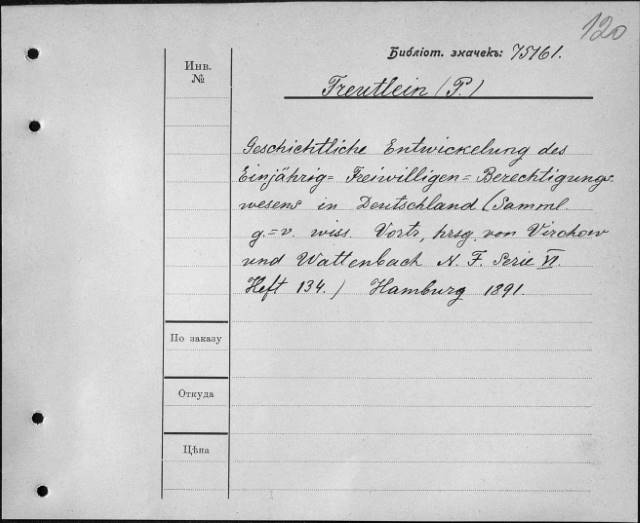 120
Библіот. значекъ: 75161.
Инв.
№
Treutlein (P.)
Geschichtliche Entwickelung des
Einjährig= Freiwilligen= Berechtigungs
wesens in Deutschland (Samml.
g.=v. wiss. Vortr, hrsg. von Virchow
und Wattenbach N. F. Serie VI.
Heft 134.) Hamburg 1891.
По заказу
Откуда
Цѣна